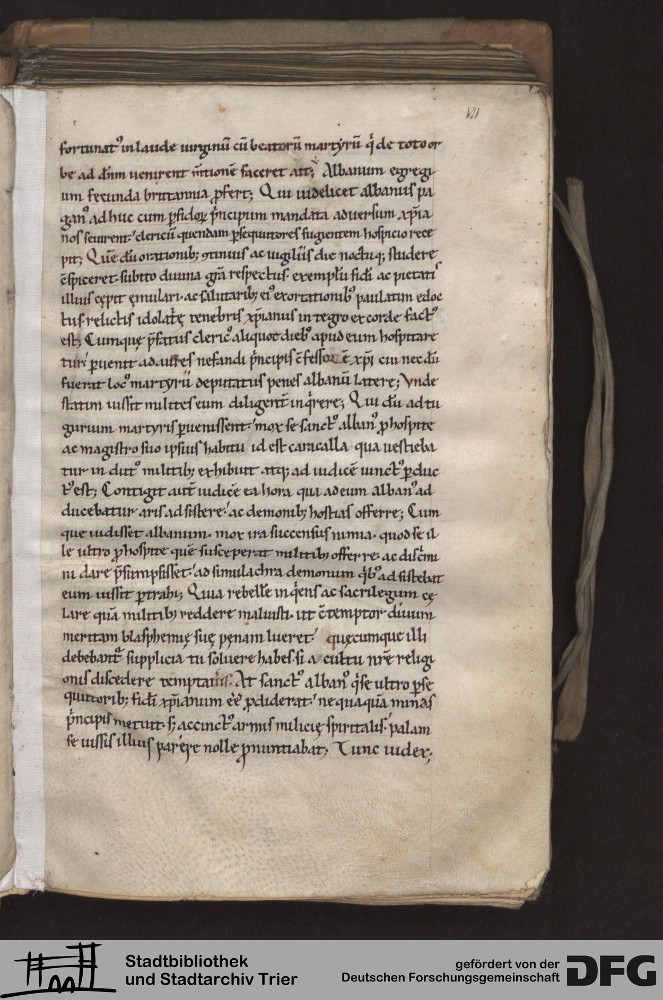 VII
fortunat᾽ in laude uirginū cū beatorū martyrū q̇ de toto or
be ad dn̄m uenirent m̄tionē faceret ait; Albanum egregi
um fecunda brittannia ꝓfert; Qui uidelicet albanus pa
gan᾽ ad huc cum ꝑfidoꝝ p̄ncipum mandata aduersum xp̄ia
nos seuirent᾽ clericū quendam ꝑsequutores fugientem hospicio rece
pit; Quē dū orationib; ↄtinuis ac uigiliis die noctuq; studere
ↄ̄spiceret. subito diuina gr̄a respectus. exemplū fidi ac pietatis
illius cępit ęmulari. ac salutarib; ei᾽ exortationib᾽ paulatim edoc
tus. relictis idolatrię tenebris xp̄ianus integro ex corde fact᾽
est; Cumque p̄fatus cleric᾽ aliquot dieb᾽ apud eum hospitare
tur᾽ ꝑuenit ad aures nefandi p̄ncipis ↄ̄fessorē xp̄i cui necdū
fuerat loc᾽ martyrii deputatus penes albanū latere; Vnde
statim iussit milites eum diligent̄ inq̇rere; Qui dū ad tu
gurium martyris ꝑuenissent. mox se sanct᾽ alban᾽ ꝓ hospite
ac magistro suo ipsius habitu id est caracalla qua uestieba
tur indut᾽ militib; exhibuit atq; ad iudicē uinct᾽ ꝑduc
t᾽ est; Contigit aut̄ iudicē ea hora qua ad eum alban᾽ ad
ducebatur aris adsistere᾽ ac demonib; hostias offerre; Cum
que uidisset albanum. mox ira succensus nimia. quod se il
le ultro ꝓ hospite quē susceperat militib; offerre. ac discˉmi
ni dare p̄sumpsisset᾽ ad simulachra demonum q̇b᾽ adsistebat
eum iussit ꝑtrahi; Quia rebellē inq̇ens ac sacrilegum cę
lare quā militib; reddere maluisti. ut ↄ̄temptor diuum
meritam blasphemię suę pęnam lueret᾽ quęcumque illi
debebant᾽ supplicia tu soluere habes. si a cultu nr̄e religi
onis discedere temptaris. At sanct᾽ alban᾽ q̇ se ultro ꝑse
quutorib; fidi xp̄ianum eē ꝓdiderat᾽ nequaquā minas
p̄ncipis metuit. sꝫ accinct᾽ armis milicię spiritalis᾽ palam
se iussis illius parere nolle ꝓnuntiabat; Tunc iudex;
Stadtbibliothek
und Stadtarchiv Trier
gefördert von der
Deutschen Forschungsgemeinschaft
DFG